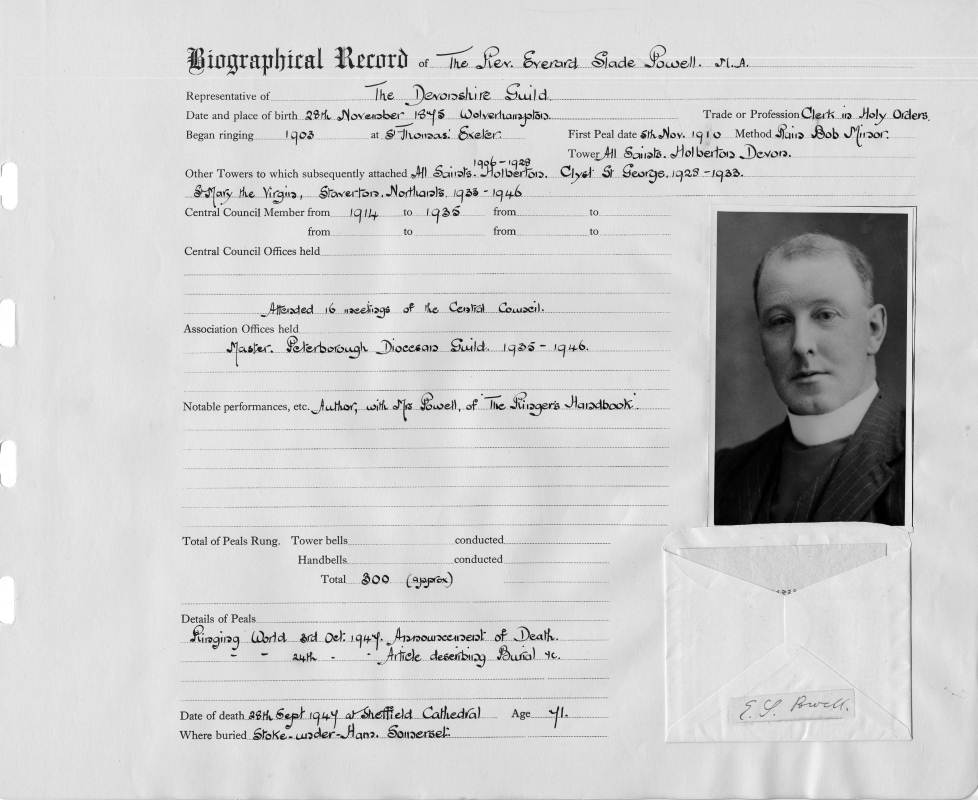 Biographical Record of The Rev. Everard Slade Powell. M.A.
Representative of The Devonshire Guild.
Date and place of birth 28th November 1875 Wolverhampton. Trade or Profession Clerk in Holy Orders.
Began ringing 1903 at St Thomas' Exeter. First Peal date 5th Nov. 1910 Method Plain Bob Minor.
Tower All Saints. Holberton Devon.
1906-1928
Other Towers to which subsequently attached All Saints. Holberton. Clyst St George. 1928-1933.
St Mary the Virgin, Staverton. Northants. 1933-1946
Central Council Member from 1914 to 1935 from to
from to from to
Central Council Offices held
Attended 16 meetings of the Central Council.
Association Offices held
Master. Peterborough Diocesan Guild. 1935-1946.
Notable performances, etc. Author, with Mrs Powell, of 'The Ringer's Handbook'.
Total of Peals Rung. Tower bells conducted
Handbells conducted
Total 300 (approx)
Details of Peals
Ringing World 3rd Oct. 1947. Announcement of Death.
" " 24th " " Article describing Burial &c.
Date of death 28th Sept 1947 at Sheffield Cathedral Age 71.
Where buried Stoke-under-Ham. Somerset.
E. S. Powell.